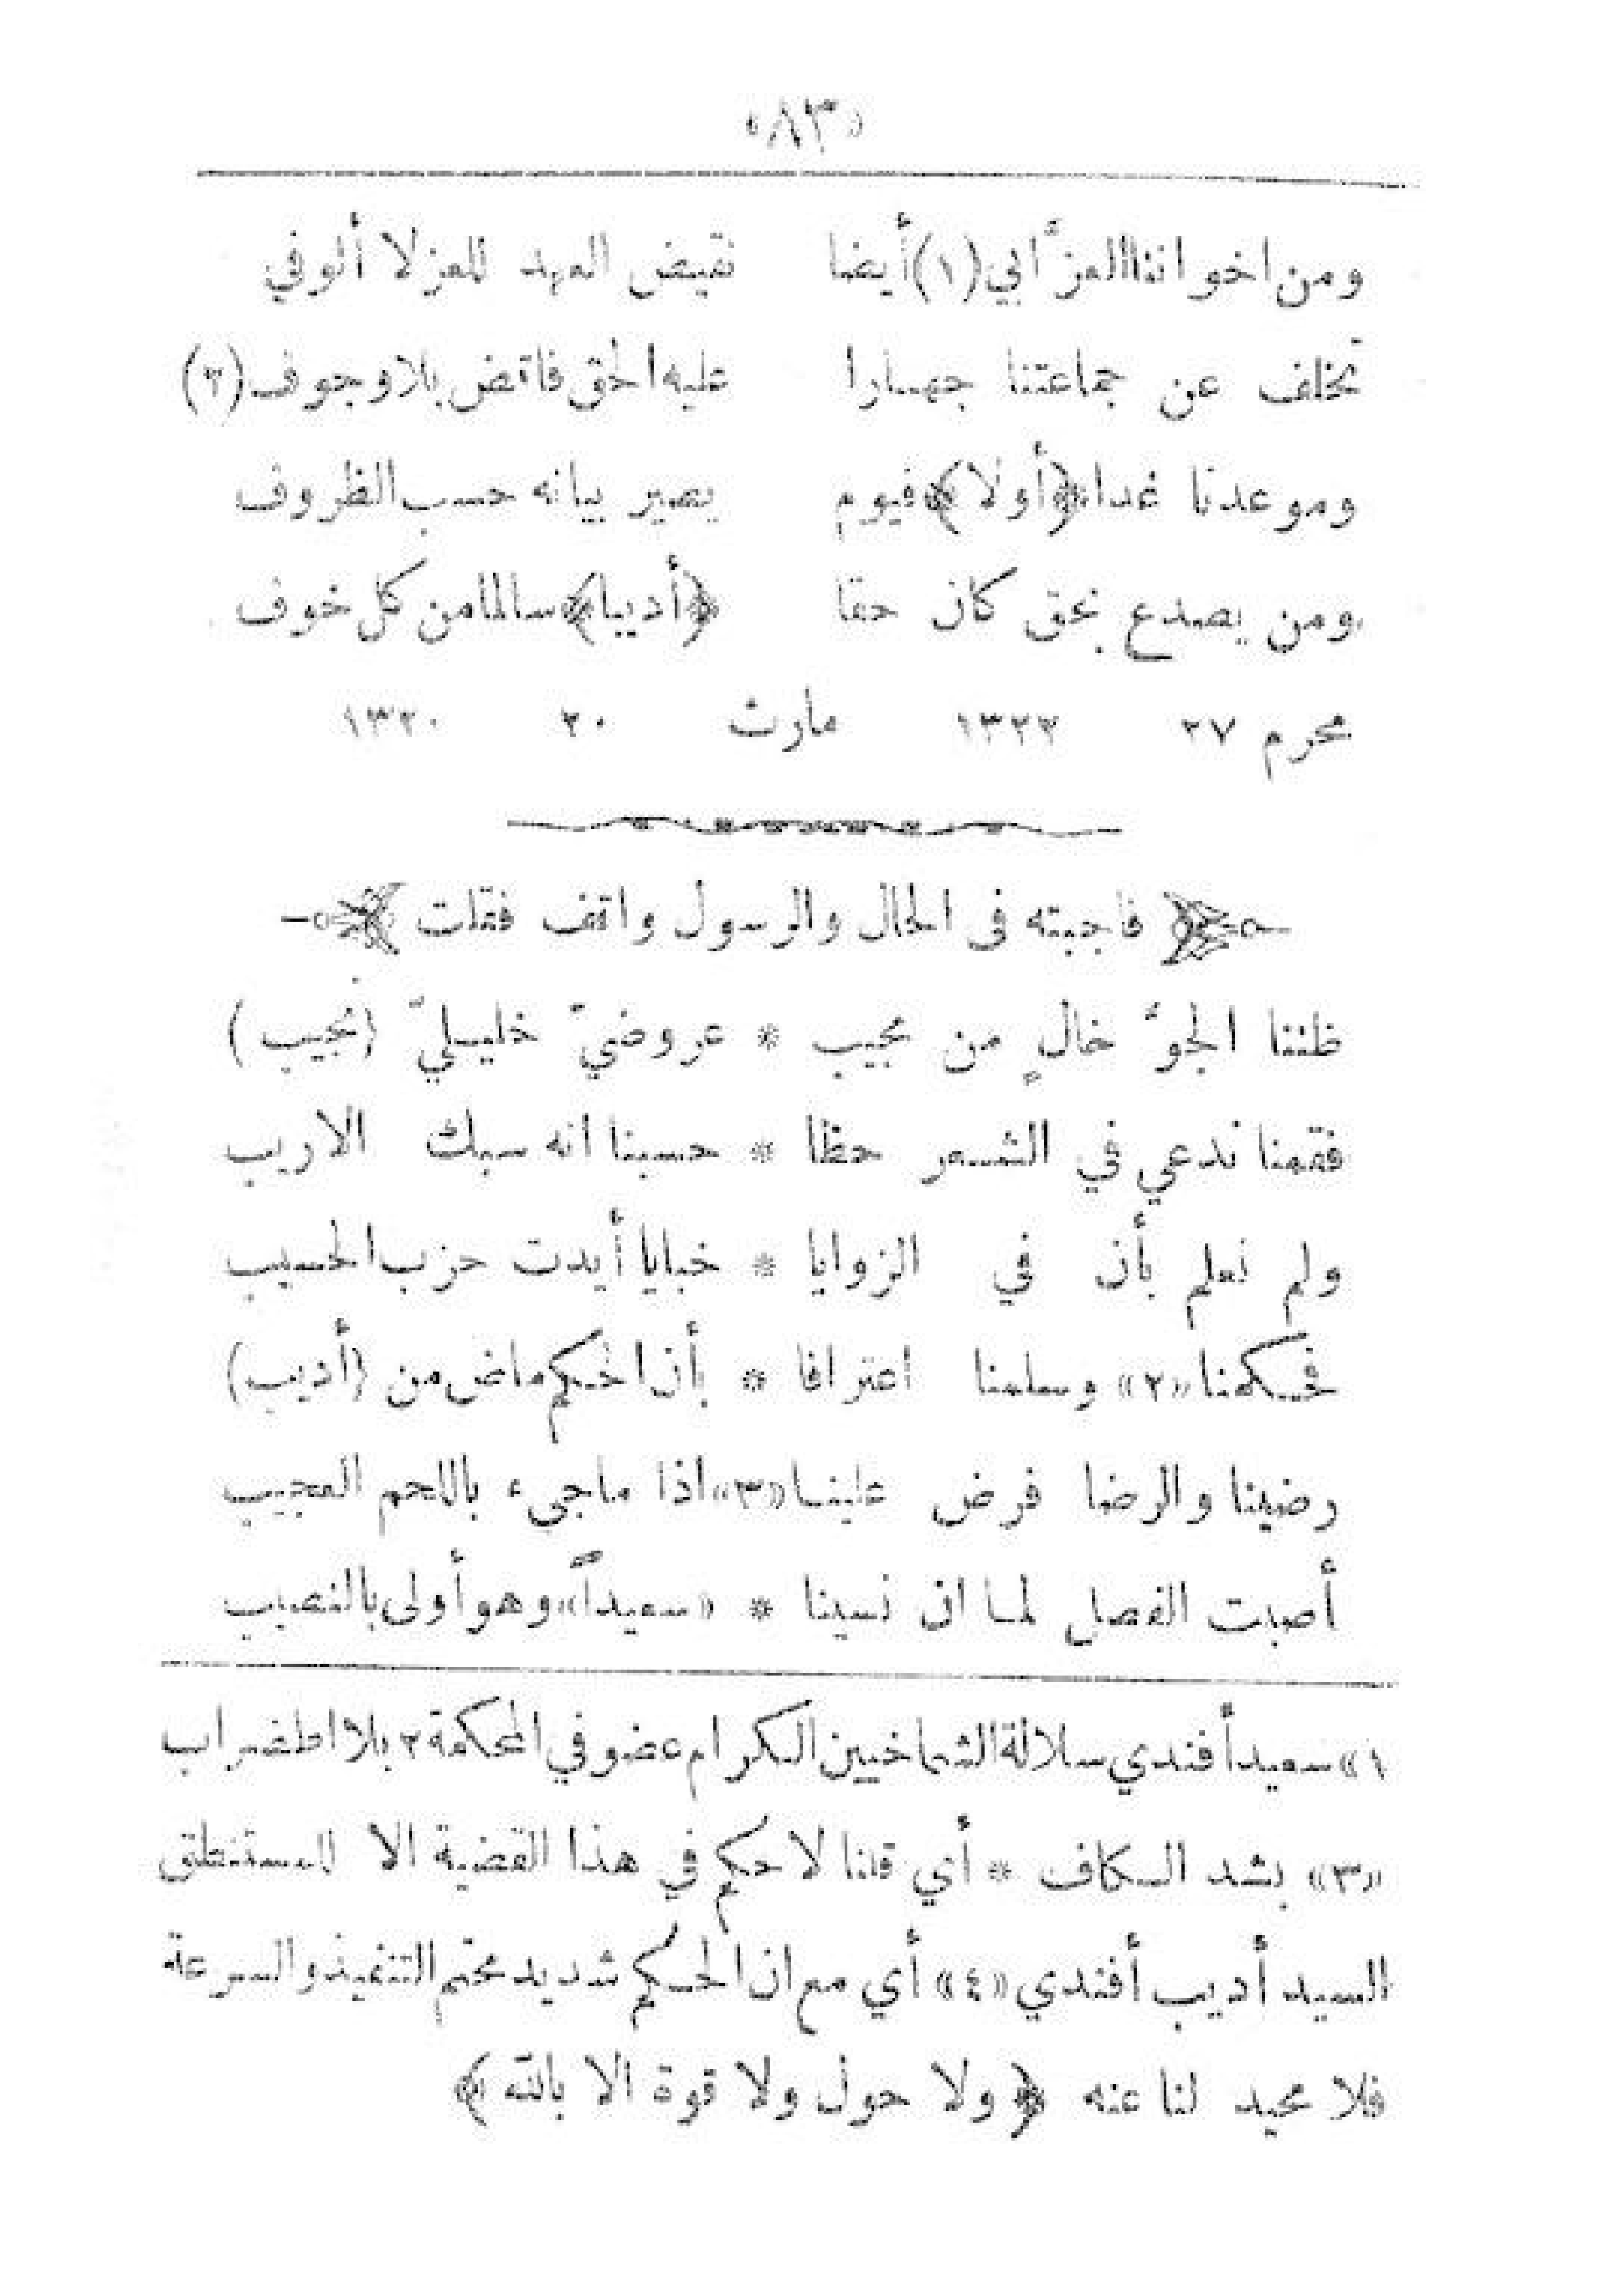 «٨٣»
ومن اخواننا العزَّابي (١) أيضا نقيض العهد للعزلا ألوفي
تخلف عن جماعتنا جهارا عليه الحق فاقض بلا وجوف (٢)
وموعدنا غدا ﴿أولا﴾ فيوم يصير بيانه حسب الظروف
ومن يصدع بحق كان حقا ﴿أديبا﴾ سالما من كل خوف
محرم ٢٧ ١٣٢٢ مارث ٢٠ ١٣٢٠
﴿ فاجبته في الحال والرسول واقف فقلت ﴾
ظننا الجوَّ خالٍ من مجيب * عروضيّ خليليّ (نجيب)
فقمنا ندعي في الشعر حظا * حسبنا انه سبك الاريب
ولم نعلم بأن في الزوايا * خبايا أيدت حزب الحسيب
فحكمنا «٢» وسلمنا اعترافا * بأن الحكم ماض من (أديب)
رضينا والرضا فرض علينا «٣» اذا ما جيء باللحم العجيب
أصبت الفصل لما ان نسينا * «سعيداً» وهو أولى بالنصيب
١» سعيد أفندي سلالة الشماخيين الكرام عضو في المحكمة ٢ بلا اضطراب
«٣» بشد الكاف * أي قلنا لا حكم في هذا القضية الا للمستنطق
السيد أديب أفندي «٤» أي مع ان الحكم شديد محتم التنفيذ والسرعة
فلا محيد لنا عنه ﴿ ولا حول ولا قوة الا بالله ﴾